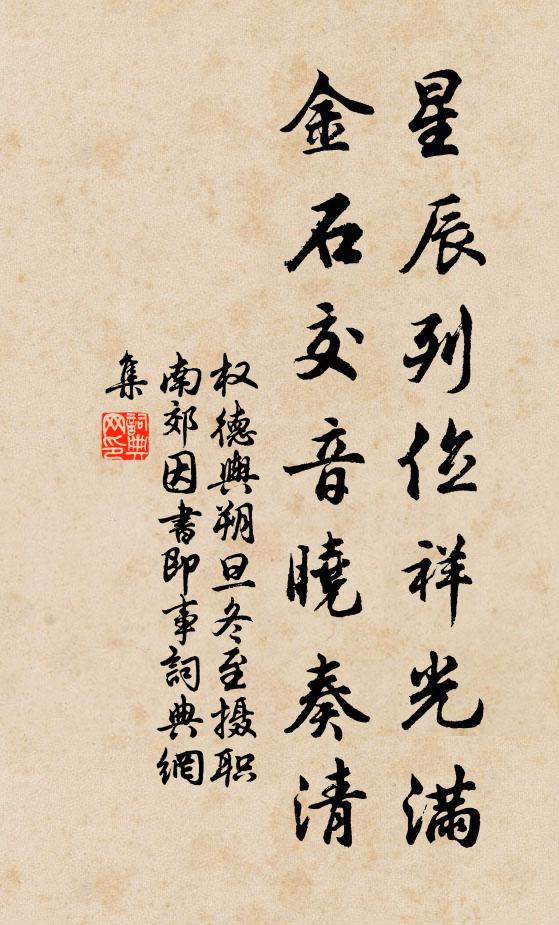 星辰列位祥光满
金石交音曉奏清
权德輿朔旦冬至摄职
南郊因書即事詞典網
集
詞典
网印